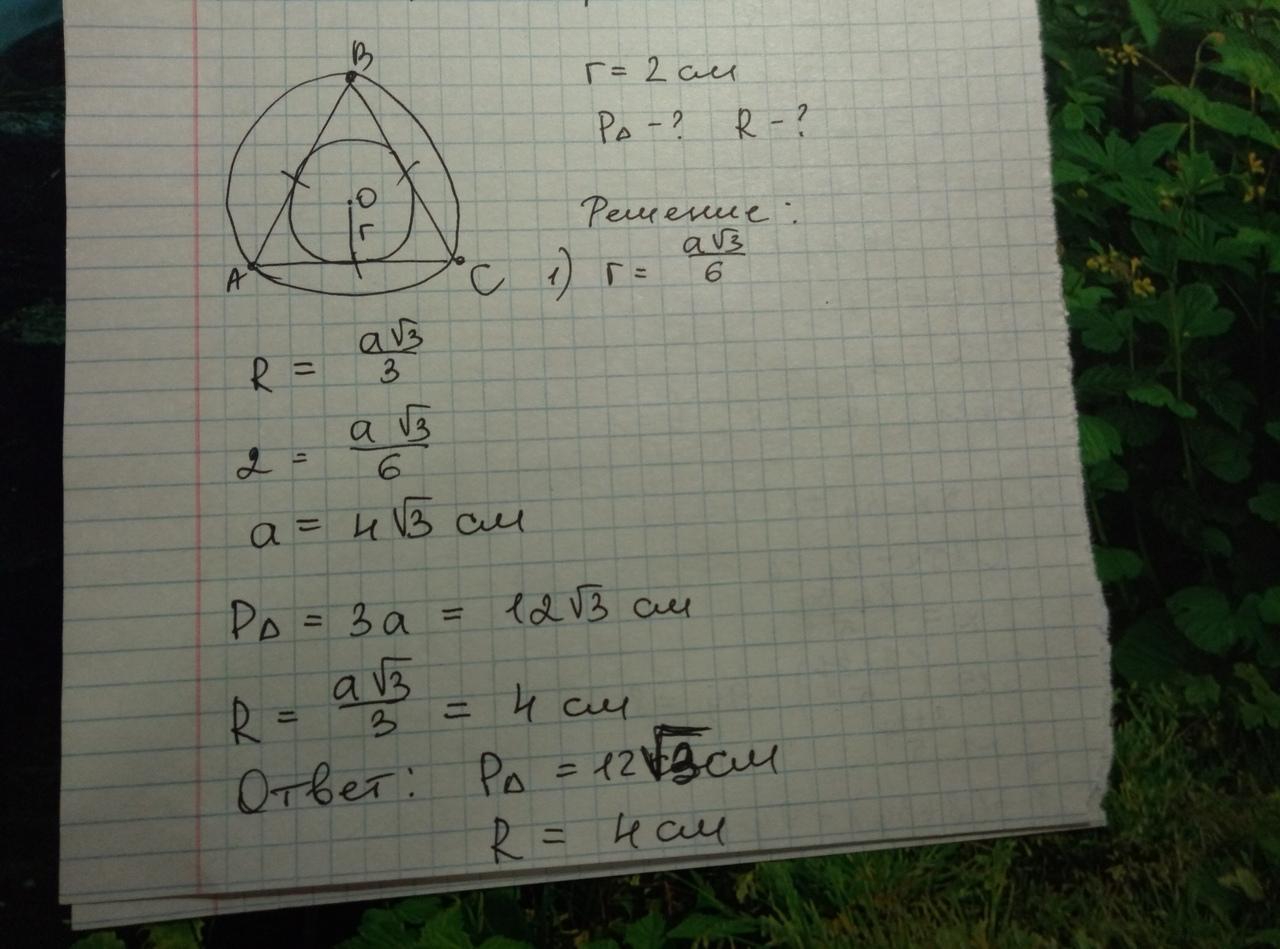 B
r = 2 см
P∆ - ? R - ?
O
r
Решение:
A
C
1) r = a√3/6
R = a√3/3
2 = a√3/6
a = 4√3 см
P∆ = 3a = 12√3 см
R = a√3/3 = 4 см
Ответ: P∆ = 12√3 см
R = 4 см